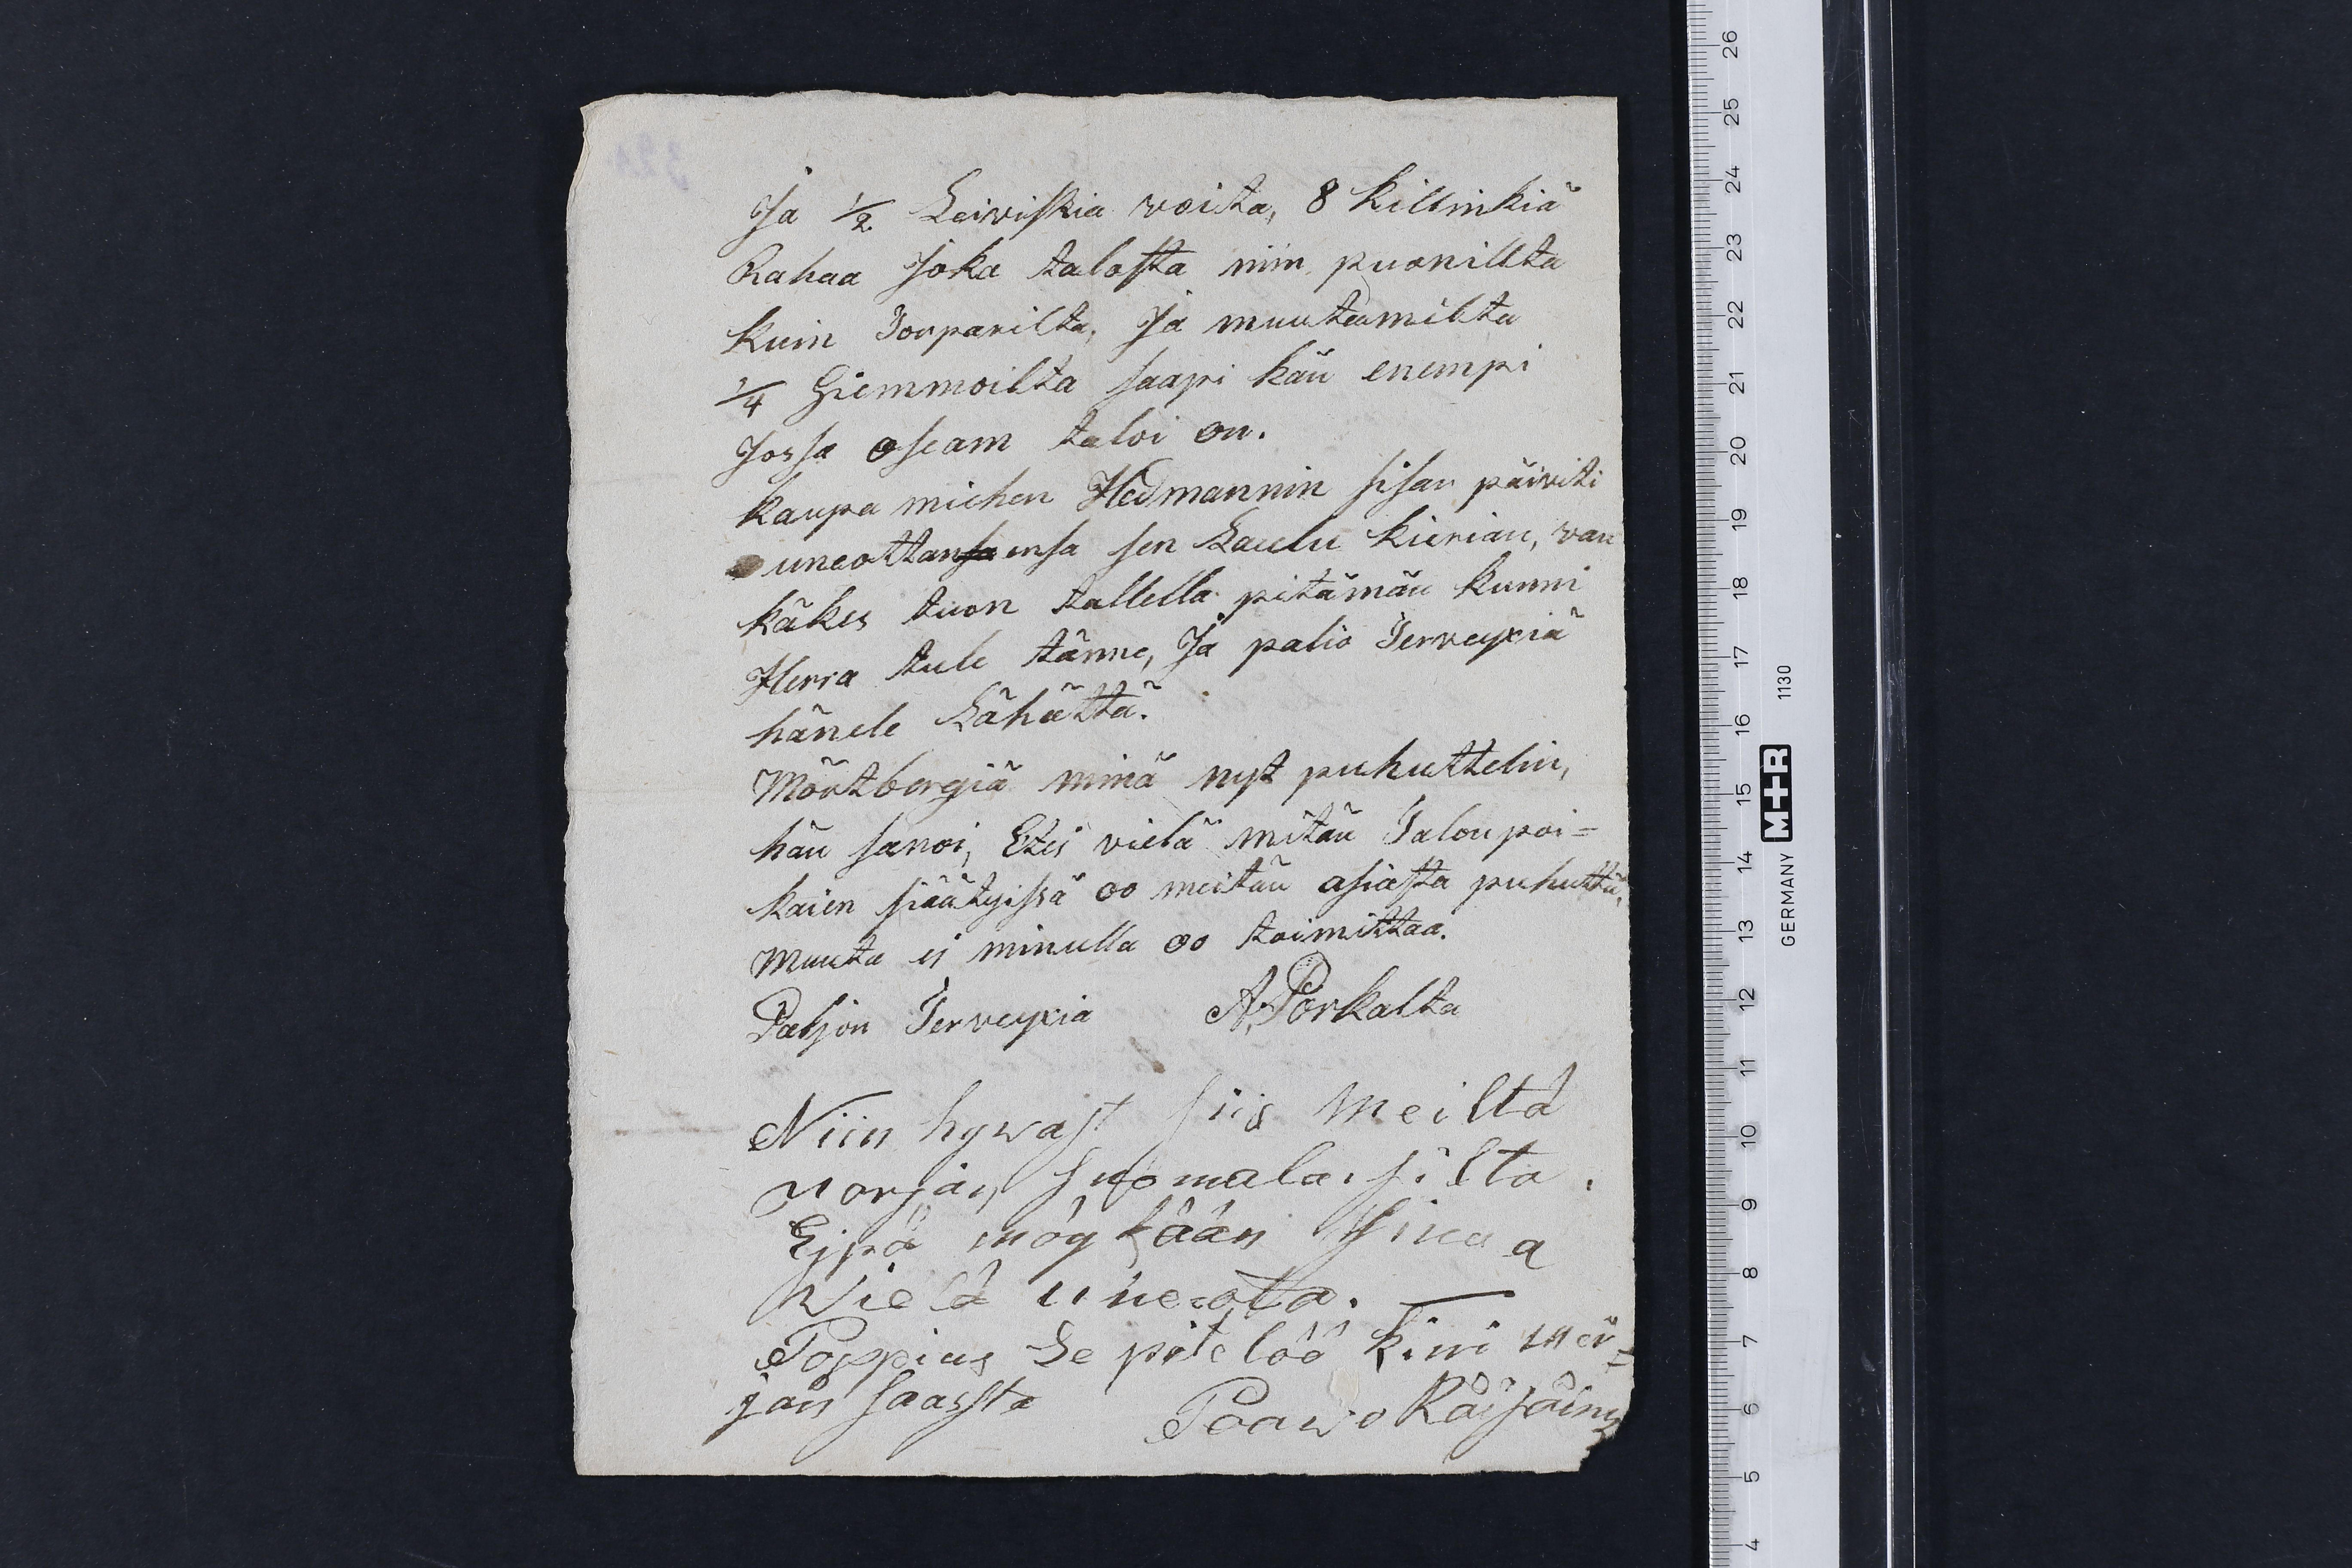 Ja 1/2 Leiviskia voita, 8 killinkiä
Rahaa joka talosta niin puonillta
kuin Torparilta, Ja muutamilta
1/4 Hiemmoilta saapi hän enempi
Jossa oseam taloi on.
kaupa miehen Hedmannin sisar päiviti
uneottansa ensa sen Laulu kirian, van
käkes tuon tallella pitämän kunni
Herra tule tänne, Ja palio Terveyxiä
hänele Lähättä.
Mörtbergiä minä nyt puhuttelin,
hän sanoi, Etei vielä mitän Talonpoi=
kaien säätyissä oo meitän asiasta puhuttu,
Muuta ei minulla oo toimittaa.
Paljon Terveyxia A. Porkalta
Niin hywäst siis Meiltä
norjan suomalaisilta.
Ejpä möykään Sinua
Wielä uneota.
Poppius Se pitelöö kini mär=
jän saassta Paawo Räisäiny
324
26
25
24
23
22
21
20
19
18
17
16
15
14
13
12
11
10
9
8
7
6
5
4
GERMANY M+R 1130